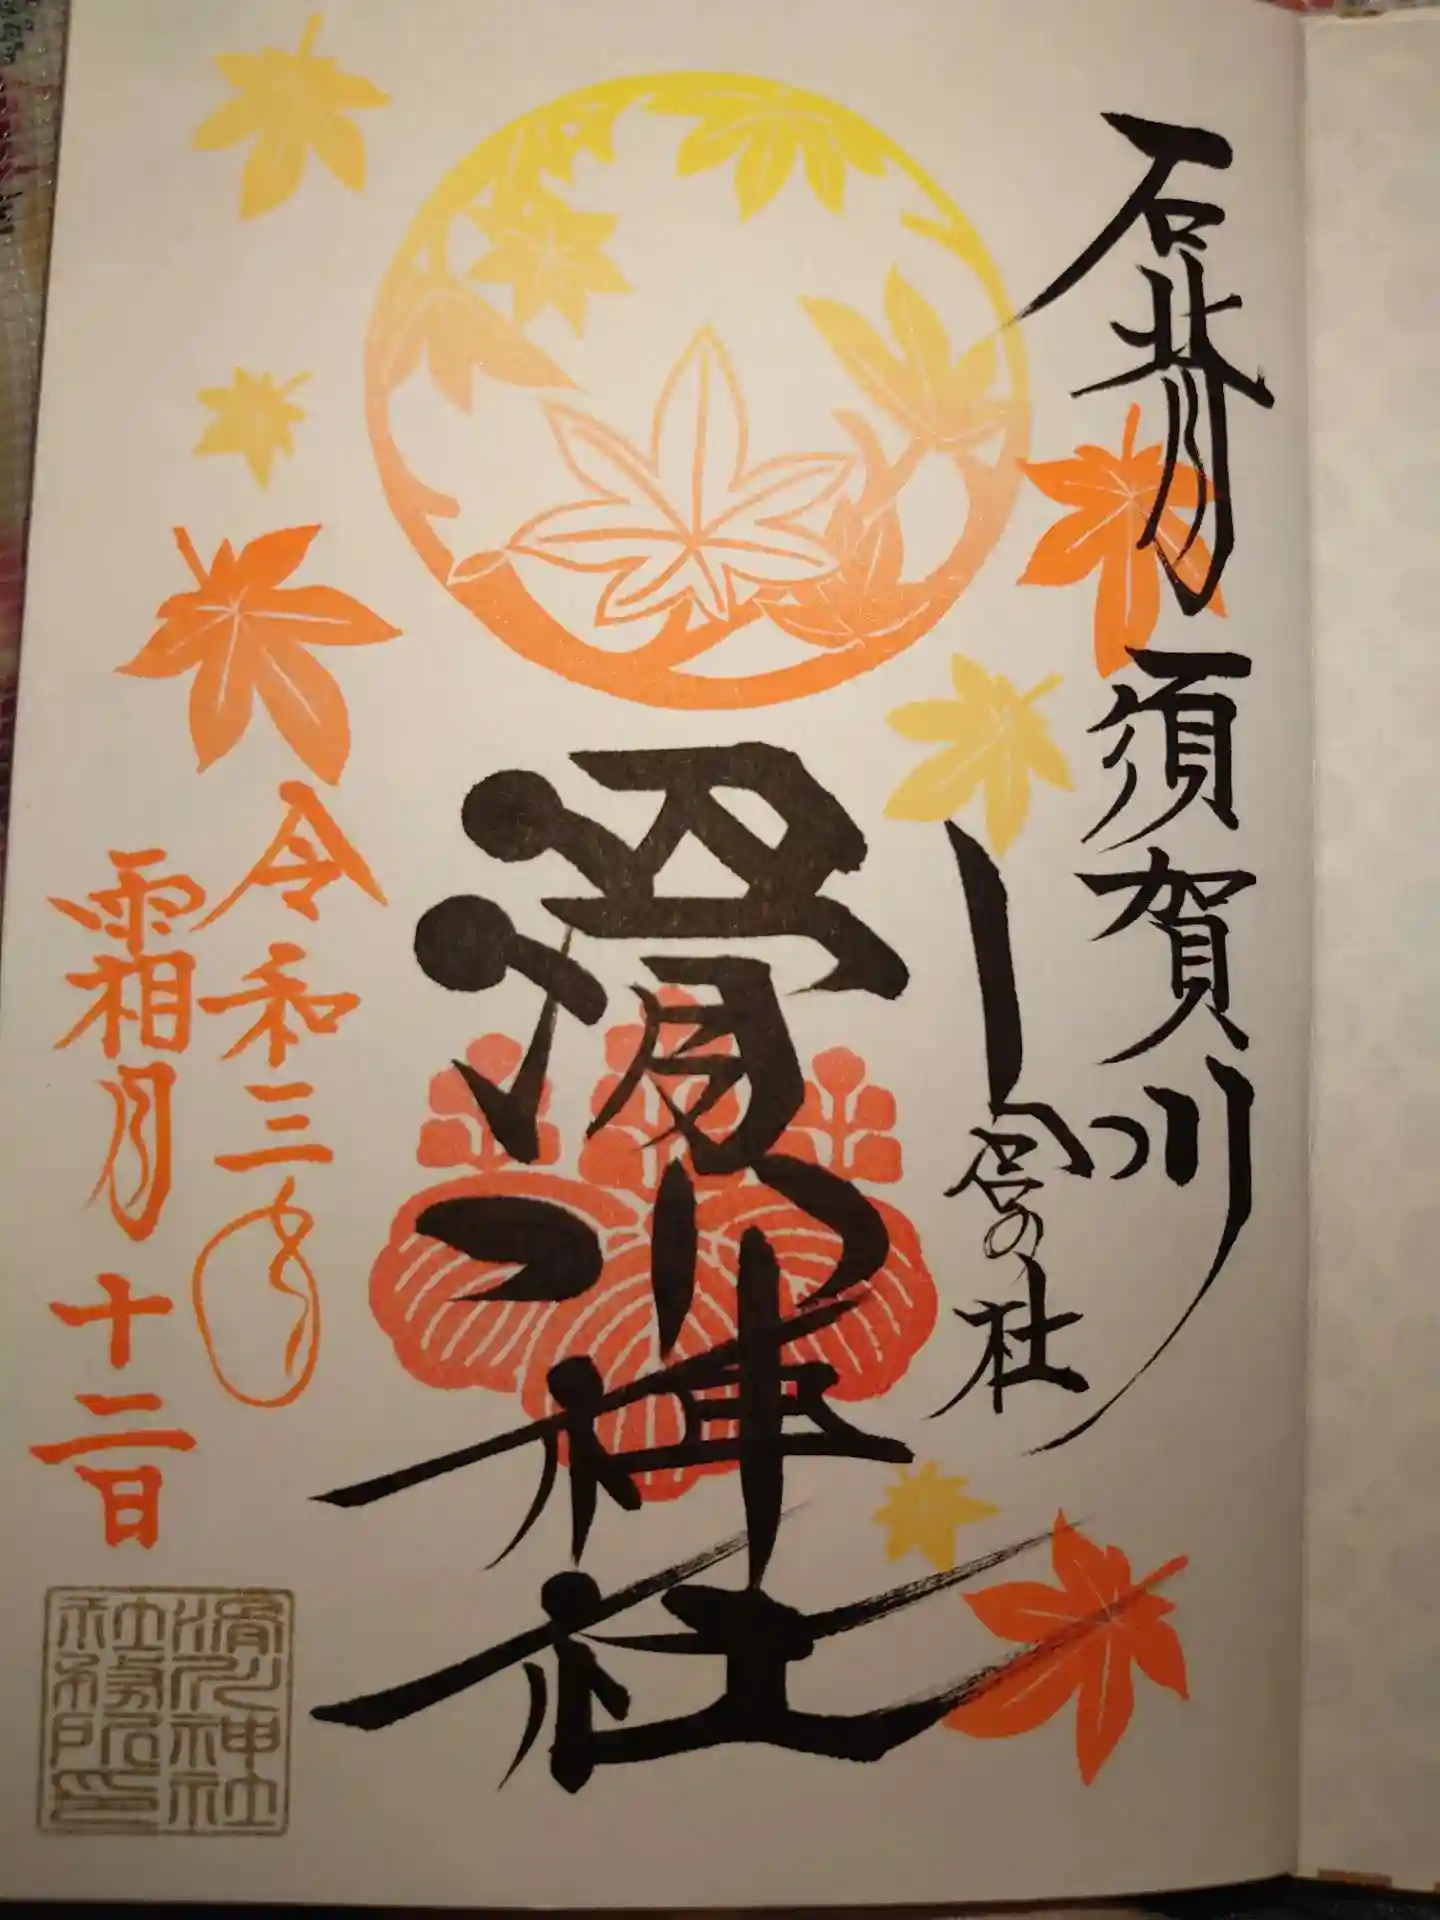 石背 須賀川
の社
滑川神社
令和三年
霜月十二日
滑川神社
社務所印